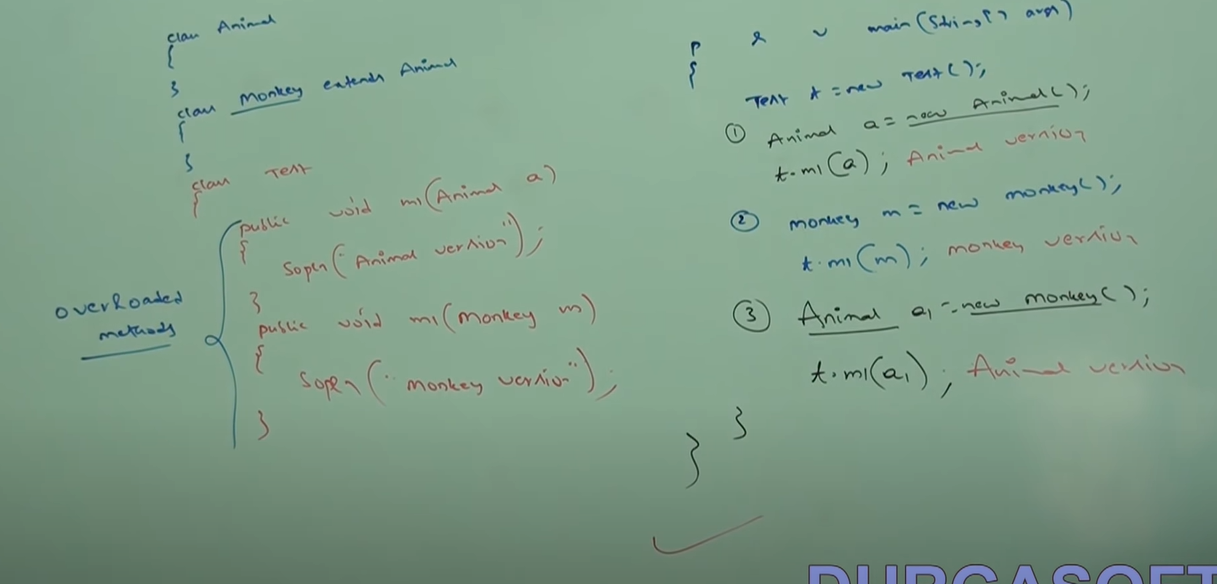 class Animal
{
}
class Monkey extends Animal
{
}
class Test
{
public void m1(Animal a)
{
Sopln("Animal version");
}
public void m1(Monkey m)
{
Sopln("monkey version");
}
overloaded
methods
p s v main(String[] args)
{
Test t = new Test();
① Animal a = new Animal();
t.m1(a); Animal version
② monkey m = new monkey();
t.m1(m); monkey version
③ Animal a1 = new monkey();
t.m1(a1); Animal version
}
}
DURGASOFT